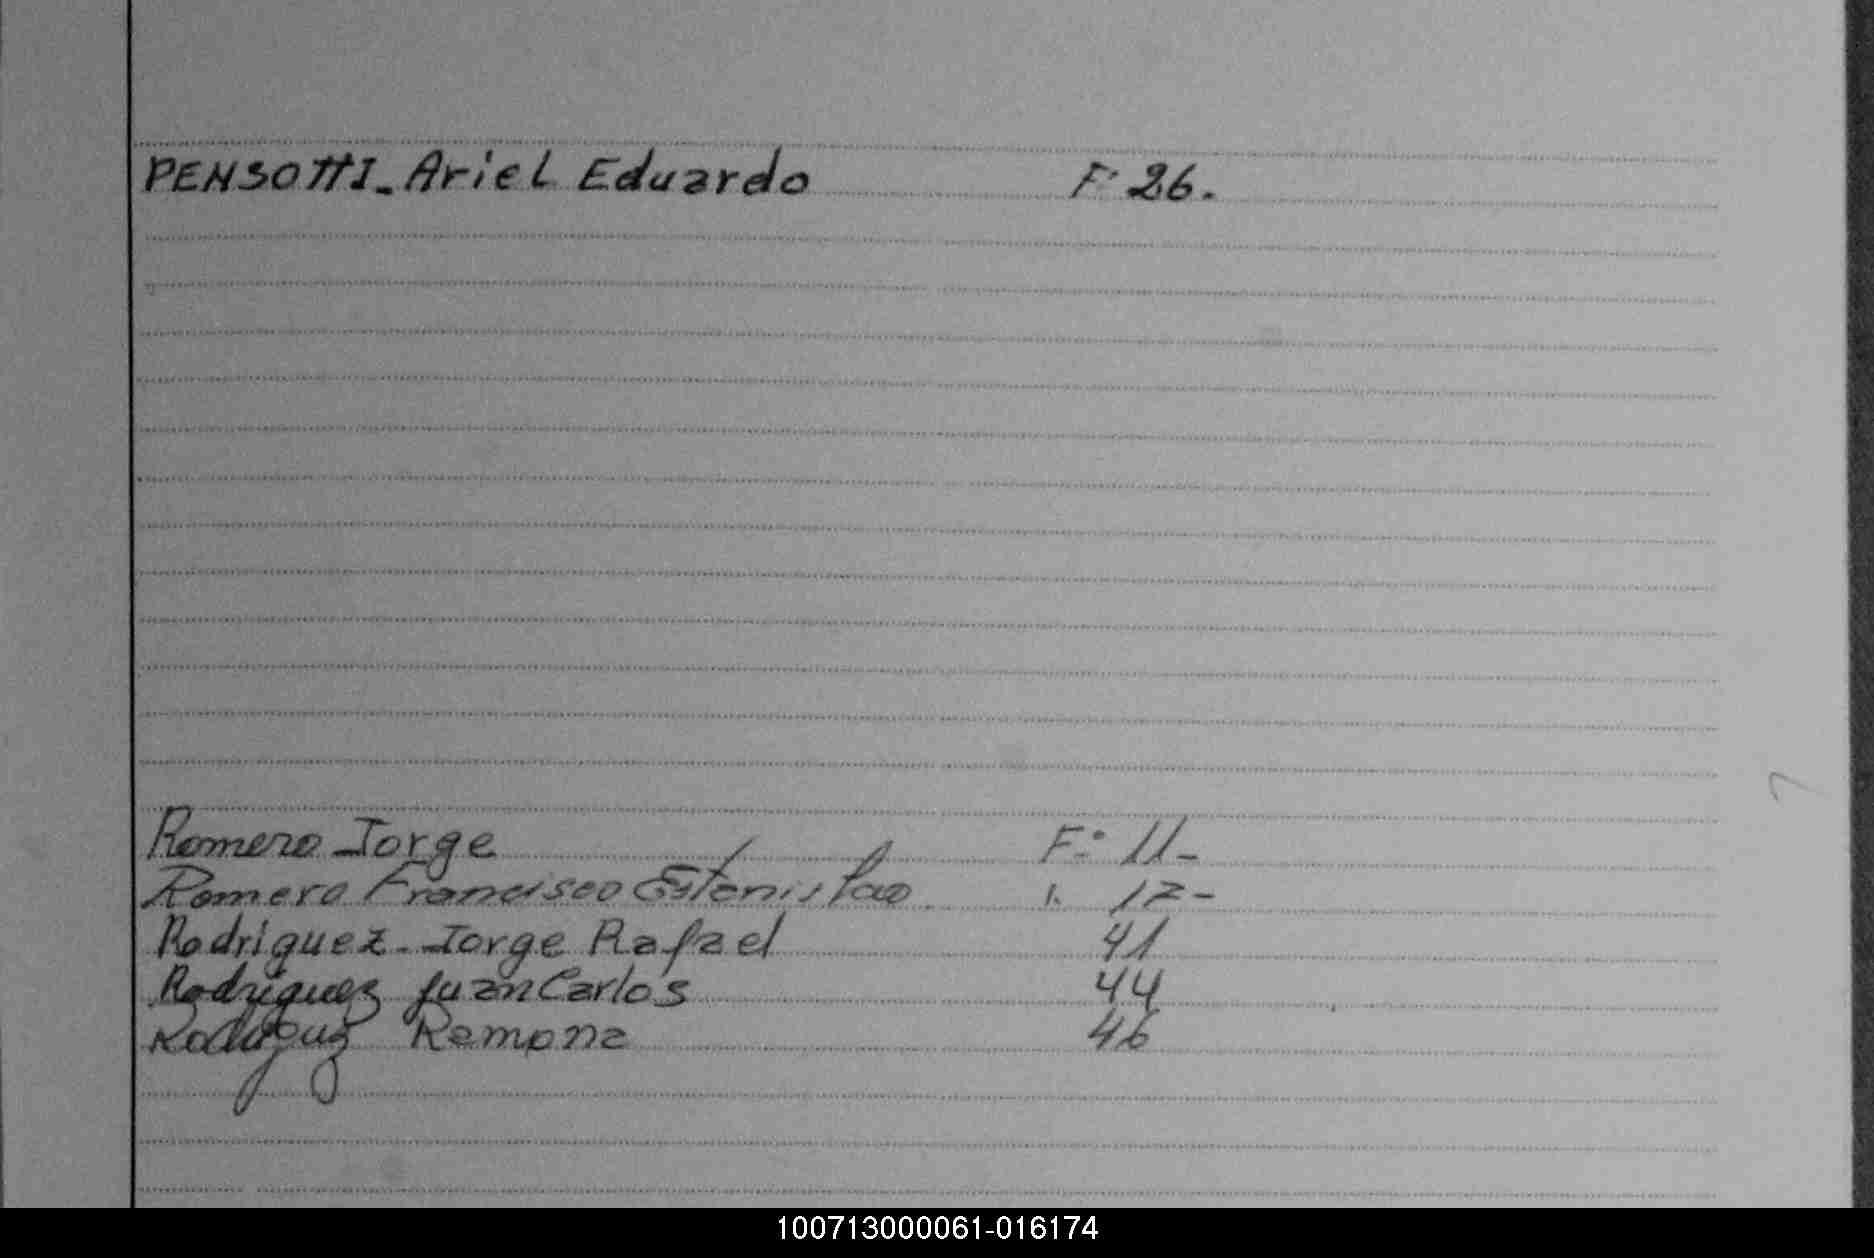 PENSOTTI - Ariel Eduardo F: 26.
Romero Jorge F: 11-
Romero Francisco Estanislao " 12-
Rodriguez - Jorge Rafael 41
Rodriguez Juan Carlos 44
Rodriguez Ramona 46
100713000061-016174